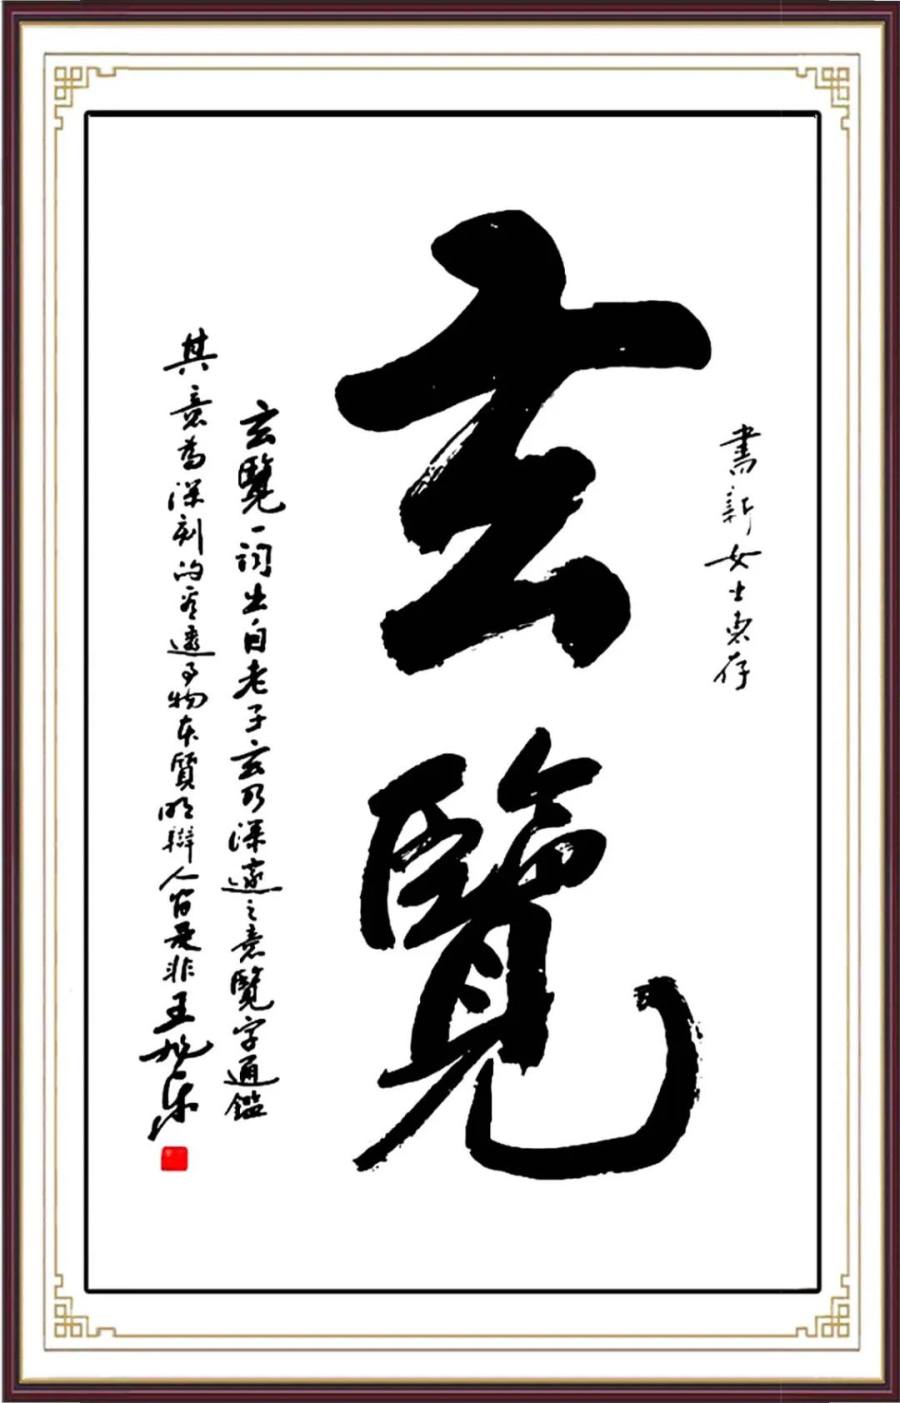 書新女士惠存
玄覽
玄覽一詞出自老子玄乃深邃之意覽字通鑑
其意為深刻的看透事物本質明辯人是非王